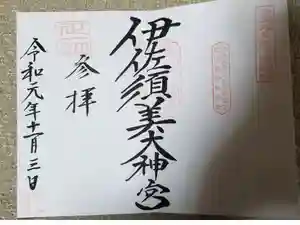 伊佐須美大神宮
参拝
令和元年十一月三日